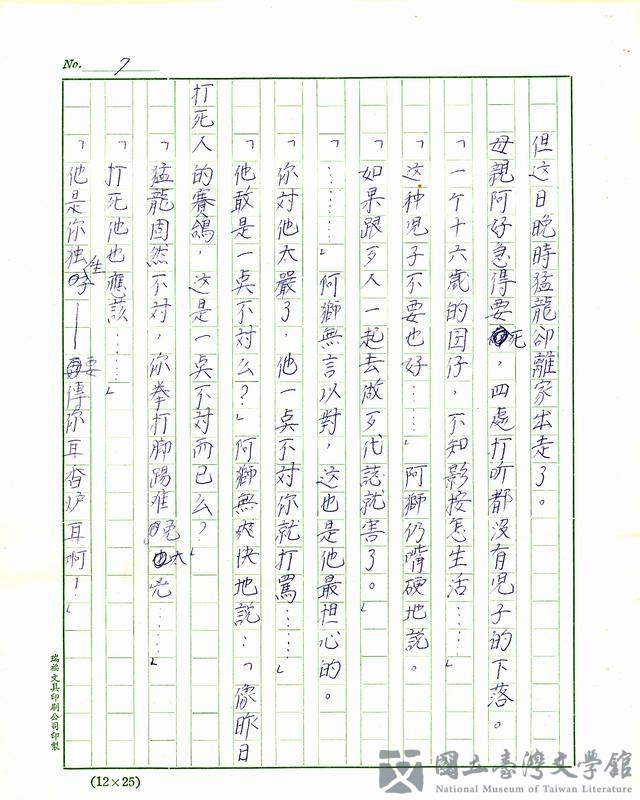 No. 7
但这日晚時猛龍卻離家出走了。
母親阿好急得要死，四處打听都沒有児子的下落。
「一个十六歲的囝仔，不知影按怎生活……」
「这种児子不要也好……」阿獅仍嘴硬地說。
「如果跟歹人一起去做歹代誌就害了。」
「………」阿獅無言以對，这也是他最担心的。
「你对他太嚴了，他一点不对你就打罵……」
「他敢是一点不对么？」阿獅無爽快地說：「像昨日
打死人的賽鴿，这是一点不对而已么？」
「猛龍固然不対，你拳打脚踢难免太兇……」
「打死他也應該……」
「他是你独生子——要傳你耳香炉耳啊！」
瑞福文具印刷公司印製
(12×25)
國立臺灣文學館
National Museum of Taiwan Literature